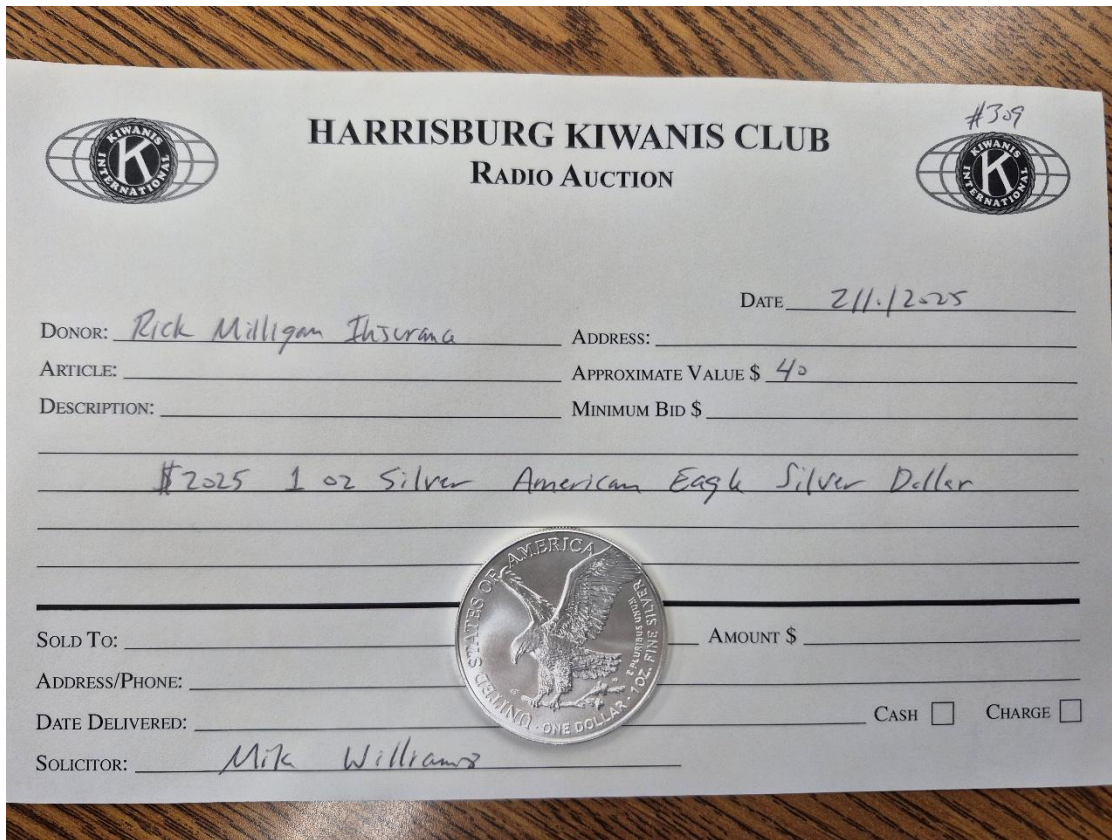 #309
KIWANIS INTERNATIONAL K
HARRISBURG KIWANIS CLUB
RADIO AUCTION
KIWANIS INTERNATIONAL K
DATE 2/1./2025
DONOR: Rick Milligan Insurance
ADDRESS:
ARTICLE:
APPROXIMATE VALUE $ 40
DESCRIPTION:
MINIMUM BID $
$2025 1 oz Silver American Eagle Silver Dollar
UNITED STATES OF AMERICA
E PLURIBUS UNUM
1 OZ. FINE SILVER · ONE DOLLAR
SOLD TO:
AMOUNT $
ADDRESS/PHONE:
DATE DELIVERED:
CASH
CHARGE
SOLICITOR: Mike Williams